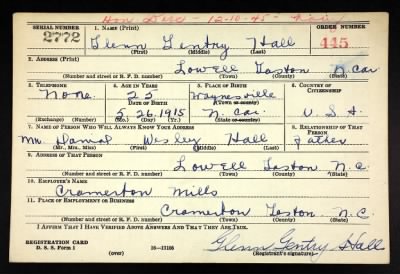 Hon Disc - 12-10-45 -
SERIAL NUMBER 1. NAME (Print) ORDER NUMBER
2772 Glenn Gentry Hall 445
(First) (Middle) (Last)
2. ADDRESS (Print)
Lowell Gaston N. Car
(Number and street or R. F. D. number) (Town) (County) (State)
3. TELEPHONE 4. AGE IN YEARS 5. PLACE OF BIRTH 6. COUNTRY OF CITIZENSHIP
None 25 Waynesville
DATE OF BIRTH (Town or county)
5. 26. 1915 N. Car. U. S. A.
(Exchange) (Number) (Mo.) (Day) (Yr.) (State or country)
7. NAME OF PERSON WHO WILL ALWAYS KNOW YOUR ADDRESS 8. RELATIONSHIP OF THAT PERSON
Mr. Wesley Hall Father
(Mr., Mrs., Miss) (First) (Middle) (Last)
9. ADDRESS OF THAT PERSON
Lowell Gaston N. C.
(Number and street or R. F. D. number) (Town) (County) (State)
10. EMPLOYER'S NAME
Cramerton Mills
11. PLACE OF EMPLOYMENT OR BUSINESS
Cramerton Gaston N. C
(Number and street or R. F. D. number) (Town) (County) (State)
I AFFIRM THAT I HAVE VERIFIED ABOVE ANSWERS AND THAT THEY ARE TRUE.
REGISTRATION CARD
D. S. S. Form 1 (over) 16-17105 Glenn Gentry Hall
(Registrant's signature)